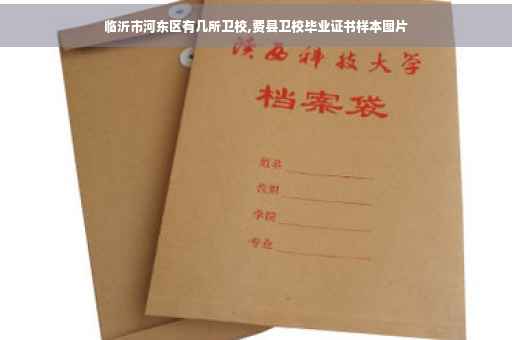 临沂市河东区有几所卫校,费县卫校毕业证书样本图片
陕西科技大学
档案袋
学院
专业